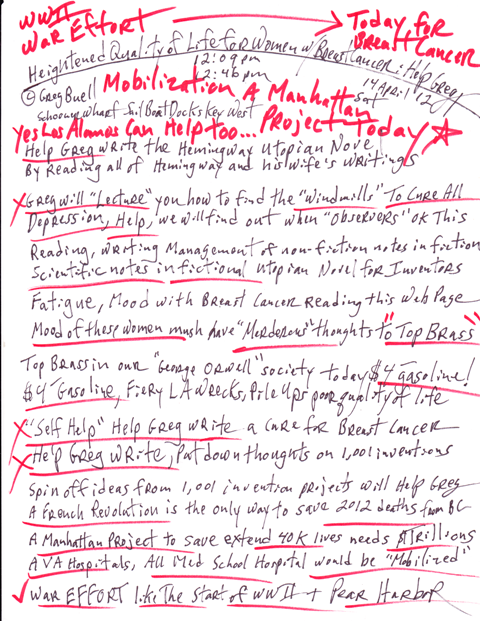 WWII → Today, for
War Effort Breast Cancer
Heightened Quality of Life for Women w/ Breast Cancer: Help Greg
12:09pm
12:46pm
© Greg Buell Mobilization A Manhattan
14 April 12
Sat
Schooner Wharf Sail Boat Docks Key West
Yes Los Alamos Can Help too... Project Today
Help Greg Write the Hemingway Utopian Novel
By Reading all of Hemingway and his wife's writings
Greg will "Lecture" you how to find the "Windmills" To Cure All
Depression, Help, we will find out when "Observers" OK This
Reading, writing Management of non-fiction notes in fiction
Scientific notes in fictional Utopian Novel for Inventors
Fatigue, Mood with Breast Cancer Reading this Web Page
Mood of these women mush have "Murderous" thoughts to "Top Brass"
Top Brass in our "George Orwell" society today $4 gasoline!
$4 Gasoline, Fiery LA Wrecks, Pile Ups poor quality of life
"Self Help" Help Greg Write a cure for Breast Cancer
Help Greg Write, Put down thoughts on 1,001 inventions
Spin off ideas from 1,001 invention projects will Help Greg
A French Revolution is the only way to save 2012 deaths from BC
A Manhattan Project to save extend 40K lives needs $Trillions
A VA Hospitals, All Med School Hospital would be "Mobilized"
War Effort like The Start of WWII + Pear Harbor